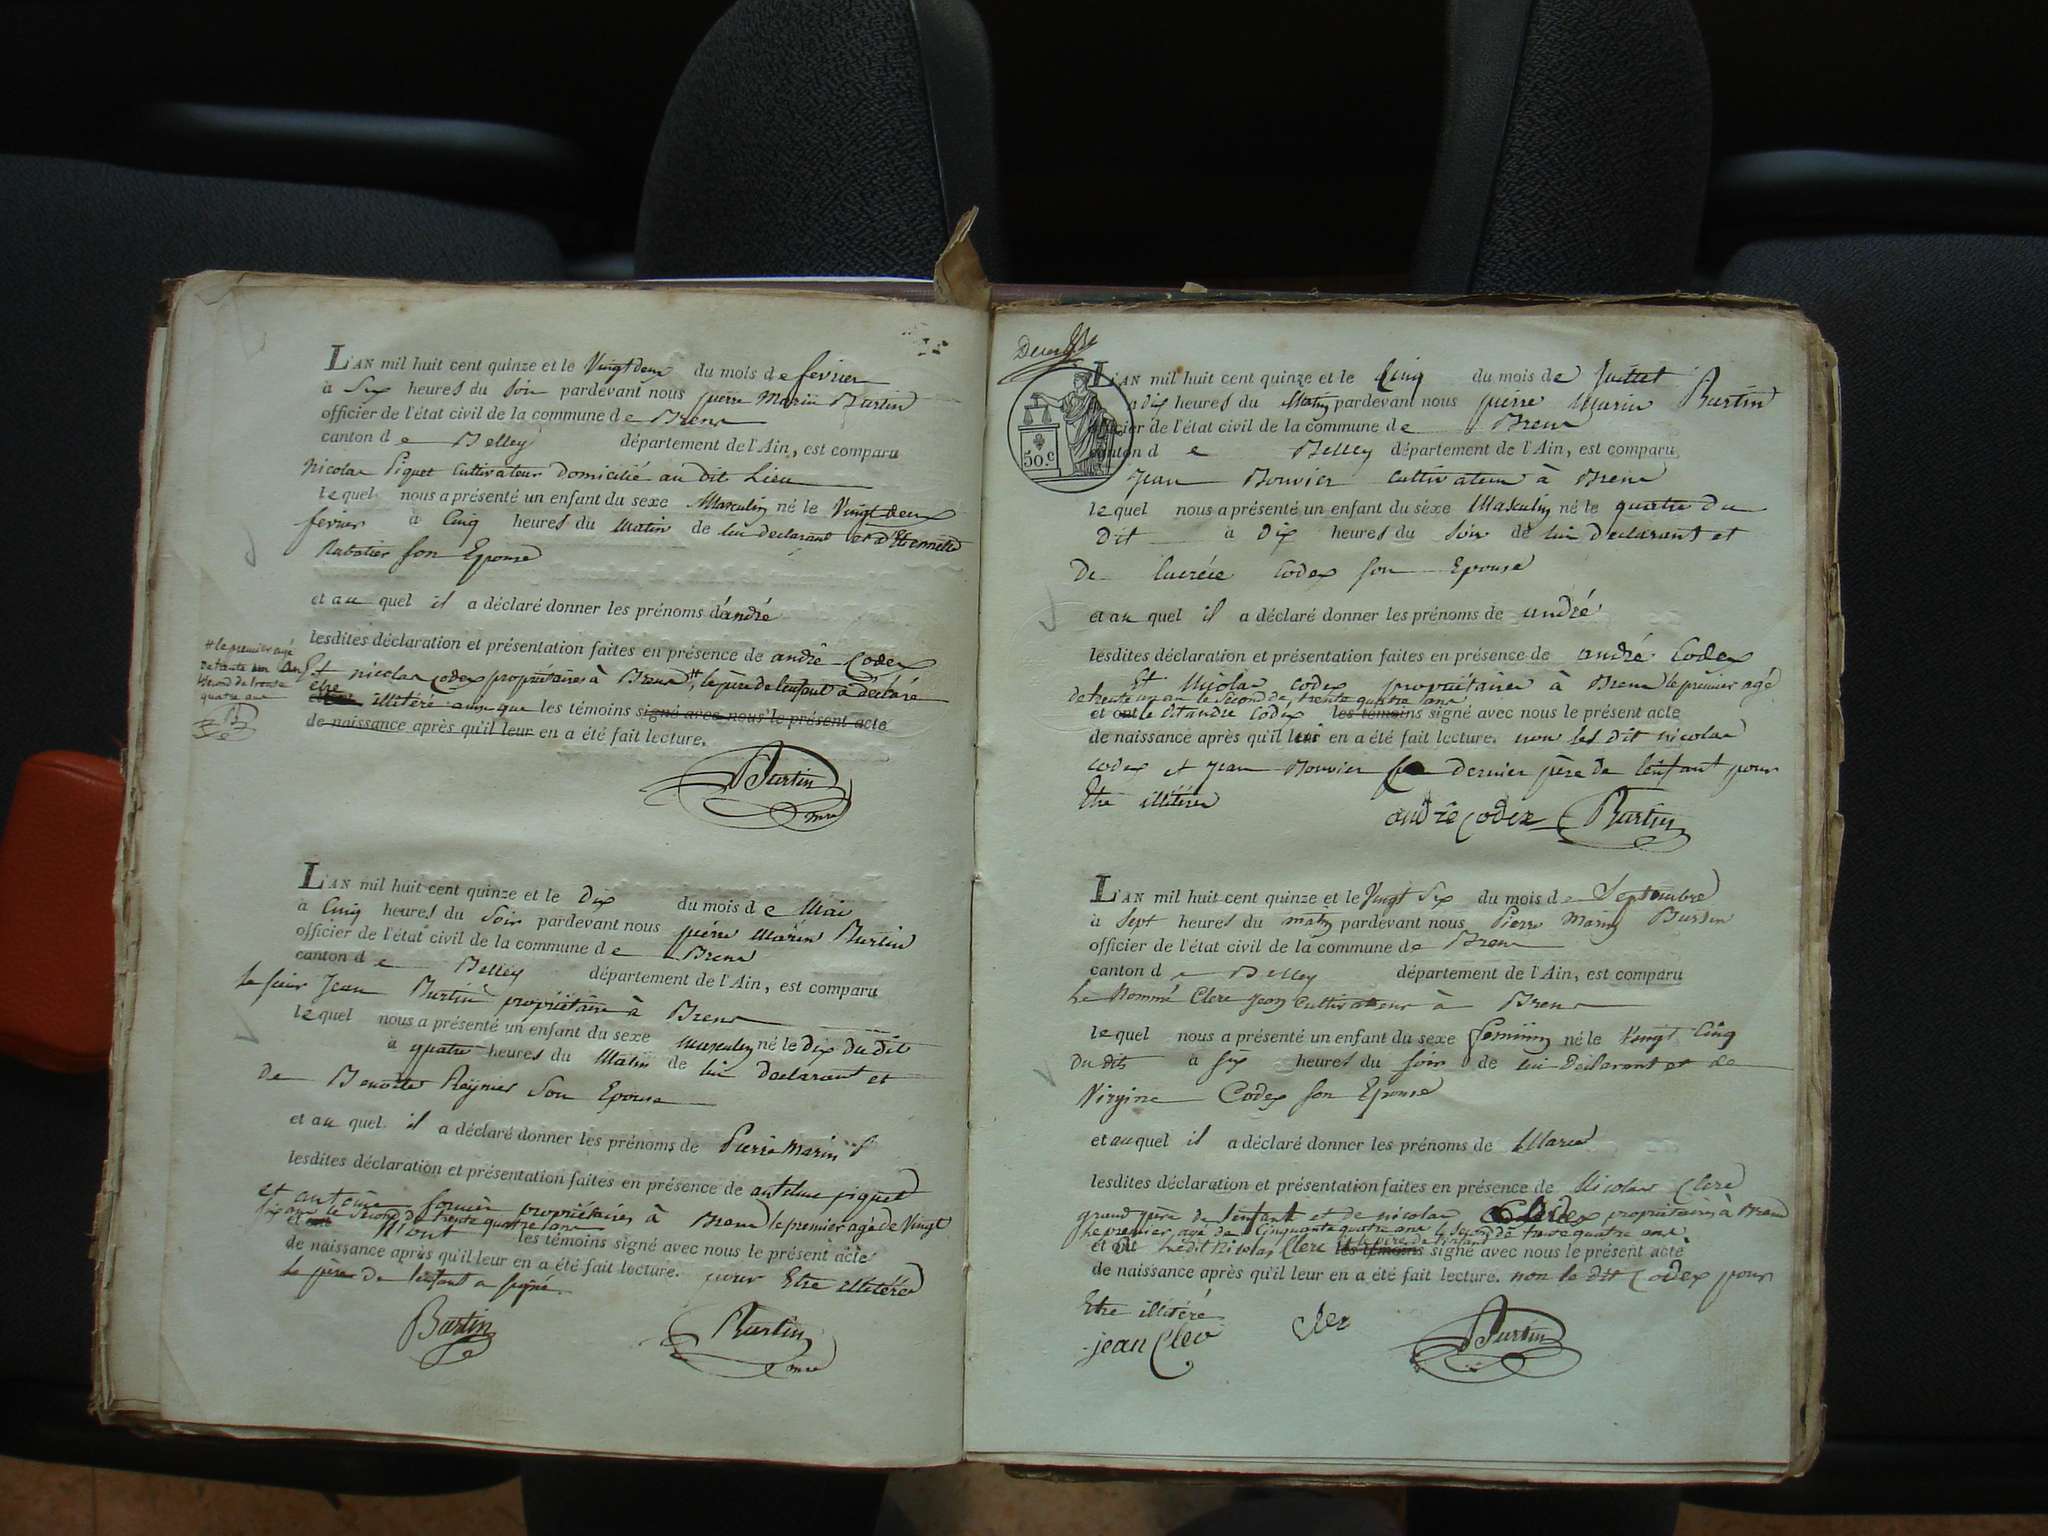 L'AN mil huit cent quinze et le Vingt deux du mois de fevrier
à Six heures du Soir pardevant nous pierre Marin Burtin
officier de l'état civil de la commune de Brens
canton de Belley département de l'Ain, est comparu
Nicolas Piquet Cultivateur domicilié au dit Lieu
lequel nous a présenté un enfant du sexe Masculin né le Vingt deux
fevrier à Cinq heures du Matin de lui declarant et d'
Rabatier son Epouse
et au quel il a déclaré donner les prénoms d'andré
lesdites déclaration et présentation faites en présence de andré Codex
Et nicolas codex propriétaires à Brens #, le père de lenfant a déclaré
être illitéré ainsi que les témoins signé avec nous le présent acte
de naissance après qu'il leur en a été fait lecture.
# le premier agé
de trente un ans
second de trente
quatre ans
B
Burtin
mre
L'AN mil huit cent quinze et le dix du mois de Mai
à Cinq heures du Soir pardevant nous pierre Marin Burtin
officier de l'état civil de la commune de Brens
canton de Belley département de l'Ain, est comparu
le sieur Jean Burtin propriétaire à Brens
lequel nous a présenté un enfant du sexe Masculin né le Dix du dit
à quatre heures du Matin de lui declarant et
de Benoite Reynier Son Epouse
et au quel il a déclaré donner les prénoms de Pierre Marin
lesdites déclaration et présentation faites en présence de antelme piquet
et antoine propriétaires à Brens le premier agé de Vingt
six ans le second de trente quatre ans
et ont les témoins signé avec nous le présent acte
de naissance après qu'il leur en a été fait lecture. pour Etre illitéré
le père de lenfant a signé
Burtin Burtin
mre
50.c
L'AN mil huit cent quinze et le Cinq du mois de Juillet
à dix heures du Matin pardevant nous pierre Marin Burtin
officier de l'état civil de la commune de Brens
canton de Belley département de l'Ain, est comparu
Jean Bouvier cultivateur à Brens
lequel nous a présenté un enfant du sexe Masculin né le quatre du
Dit à dix heures du Soir de lui Declarant et
de Lucrèce Codex son Epouse
et au quel il a déclaré donner les prénoms de andré
lesdites déclaration et présentation faites en présence de andré Codex
Et Nicolas codex propriétaires à Brens le premier agé
de trente un ans le second de trente quatre ans
et ont le dit andré Codex les témoins signé avec nous le présent acte
de naissance après qu'il leur en a été fait lecture. non les dit nicolas
codex et jean Bouvier dernier père de lenfant pour
Etre illitérés
andré codex Burtin
L'AN mil huit cent quinze et le Vingt Six du mois de Septembre
à Sept heures du matin pardevant nous Pierre Marin Burtin
officier de l'état civil de la commune de Brens
canton de Belley département de l'Ain, est comparu
Le Nommé Clerc Jean Cultivateur à Brens
lequel nous a présenté un enfant du sexe feminin né le Vingt Cinq
du dit à six heures du soir de lui Déclarant et de
Virgine Codex son Epouse
et au quel il a déclaré donner les prénoms de Marie
lesdites déclaration et présentation faites en présence de Nicolas Clerc
grand père de l'enfant et de nicolas Codex propriétaires à Brens
le premier agé de Cinquante quatre ans le second de trente quatre ans
et le père de l'enfant
et ont ledit Nicolas Clerc les témoins signé avec nous le présent acte
de naissance après qu'il leur en a été fait lecture. non le dit Codex pour
Etre illitéré
jean Clerc Clerc Burtin